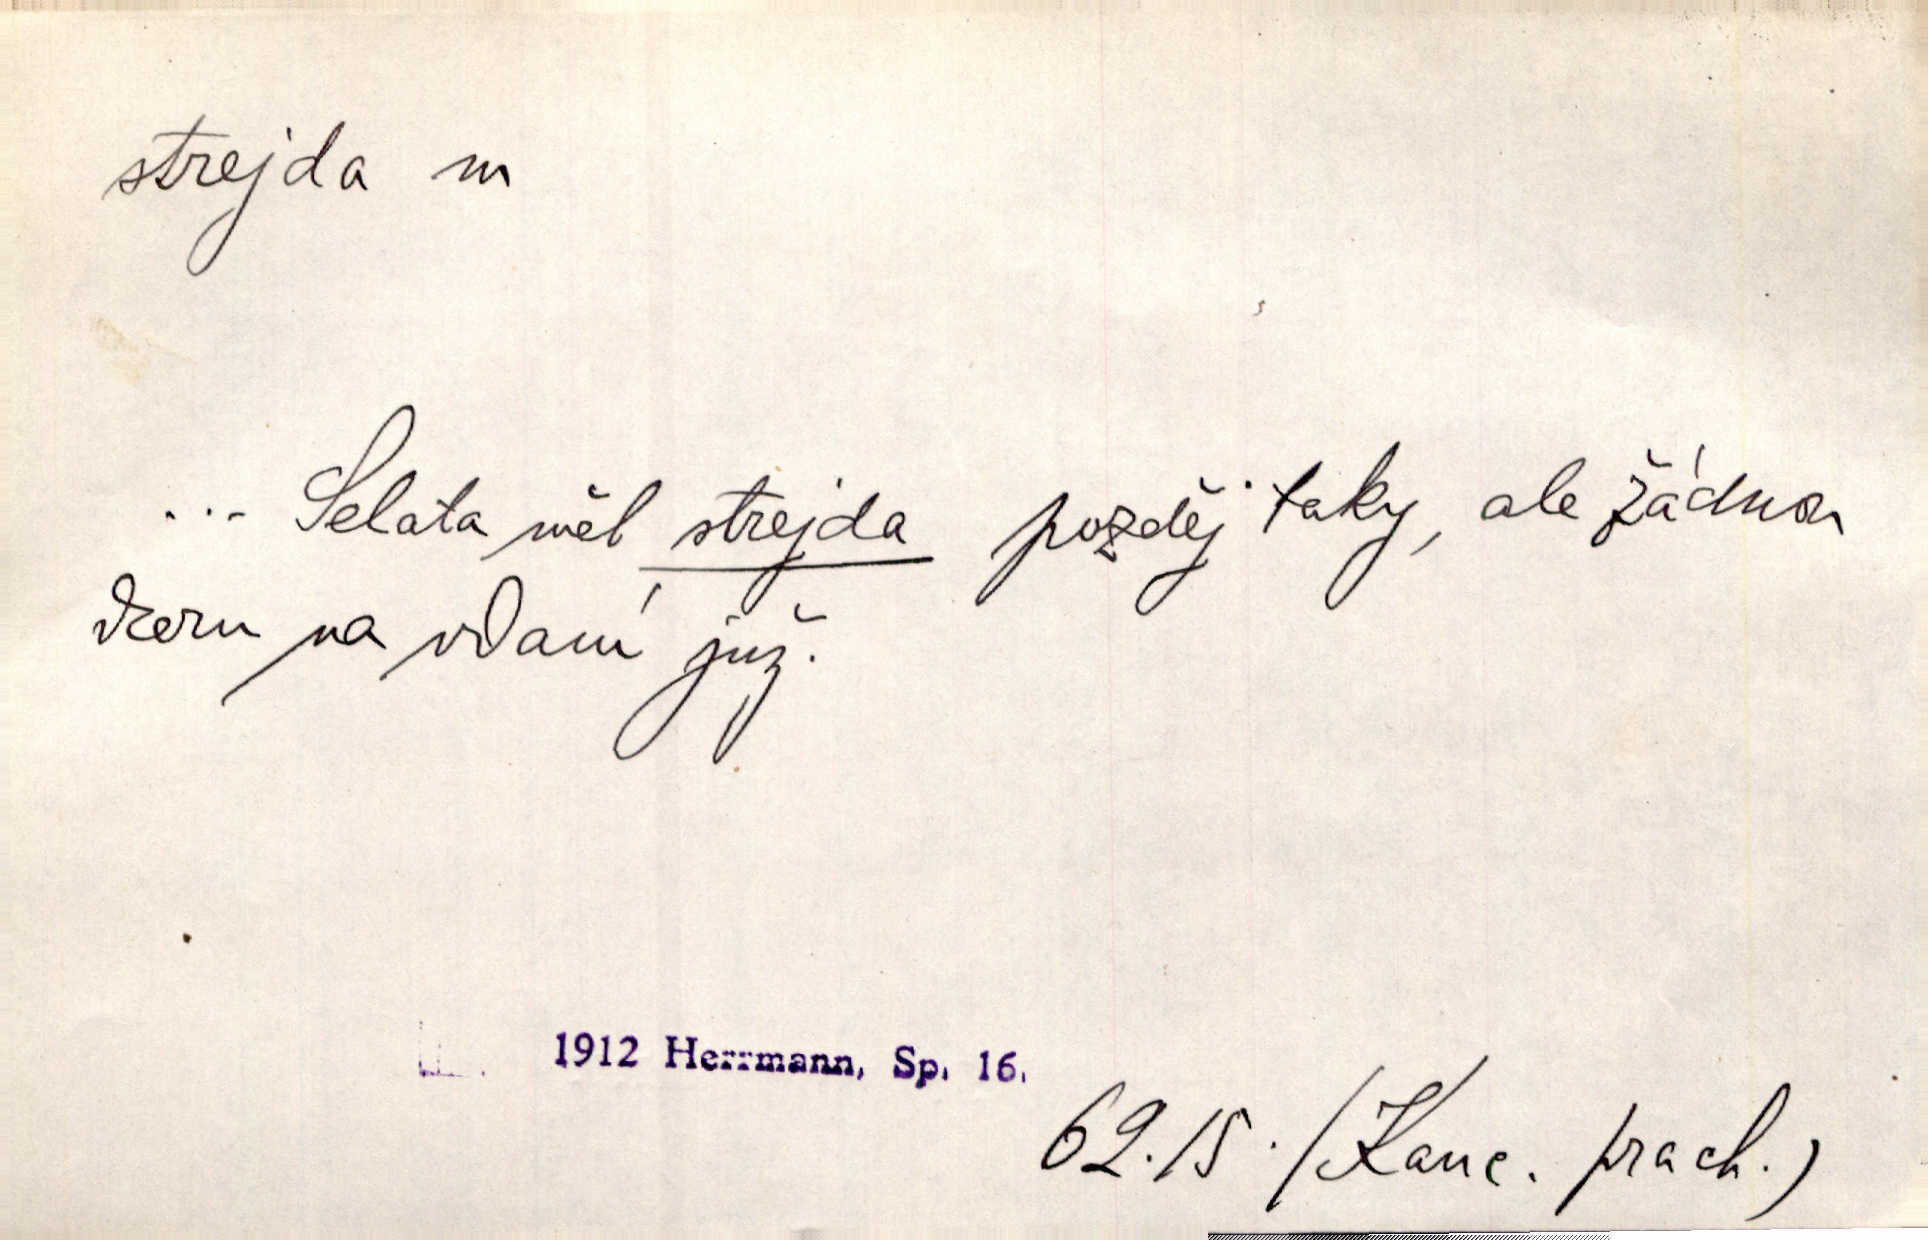 strejda m
... Selata měl strejda pozděj taky, ale žádnou
dceru na vdaní již.
1912 Herrmann, Sp. 16.
62.15. (Kanc. prach.)